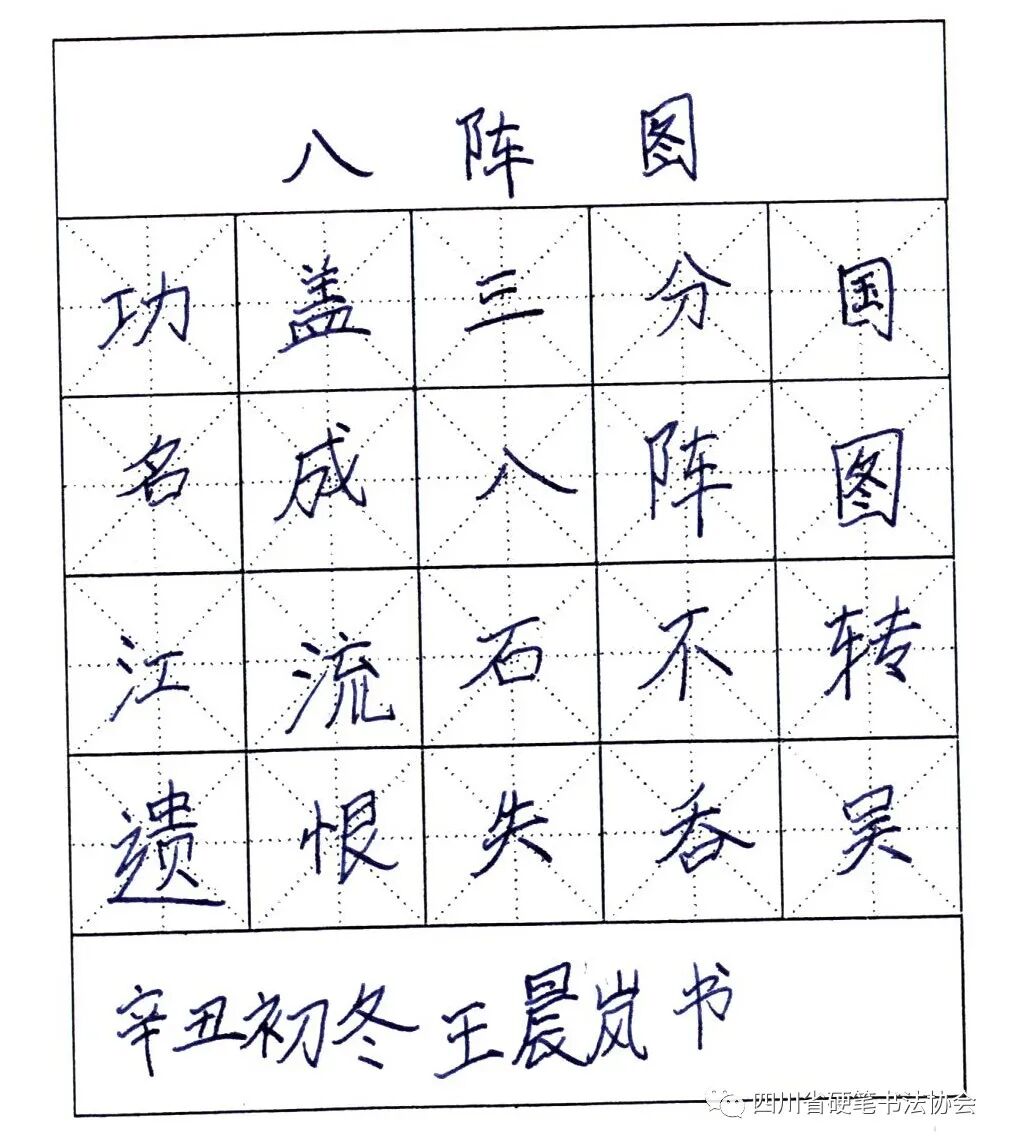 八阵图
功盖三分国
名成八阵图
江流石不转
遗恨失吞吴
辛丑初冬王晨岚书
四川省硬笔书法协会